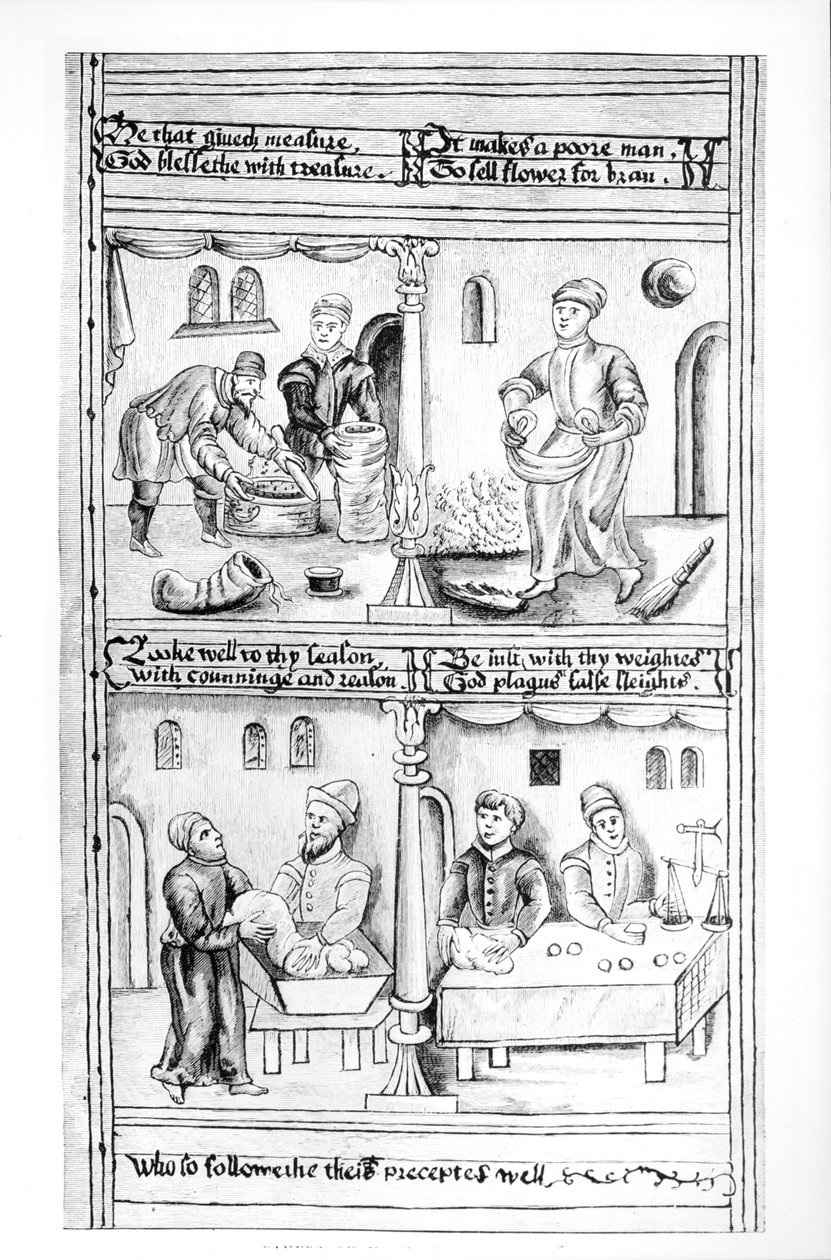 He that giueth measure,
God blessethe with treasure.
It makes a poore man,
To sell flower for bran.
Looke well to thy season,
with counninge and reason.
Be iust with thy weightes
God plagus false sleights.
Who so followethe theis preceptes well